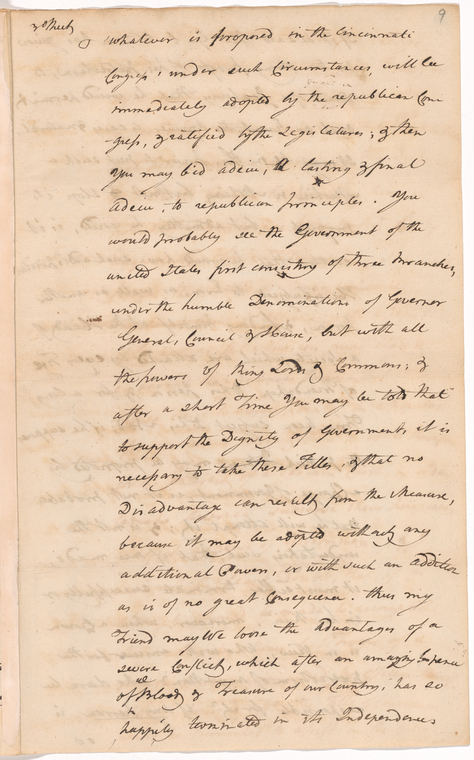 9
3d Sheet
whatever is proposed in the Cincinnati
Congress, under such Circumstances, will be
immediately adopted by the republican Con
-gress, & ratified by the Legislatures; & then
You may bid adieu, a lasting & final
adieu, to republican principles. You
would probably see the Government of the
united States first consisting of three Branches,
under the humble Denominations of Governor
General, Council & House, but with all
the powers of King Lords & Commons; &
after a short Time You may be told that
to support the Dignity of Government it is
necessary to take these Titles, & that no
Disadvantage can result from the Measure,
because it may be adopted without any
additional Powers, or with such an addition
as is of no great Consequence. thus my
Friend may We loose the Advantages of a
severe Conflict, which after an amazing Expence
of Blood & Treasure of our Country, has so
happily terminated in its Independence